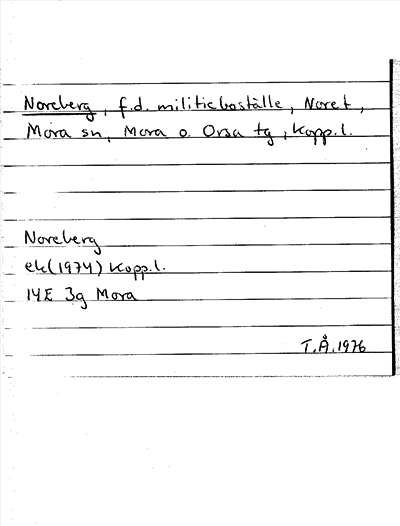 Noreberg, f.d. militieboställe, Noret,
Mora sn, Mora o. Orsa tg, Kopp.l.
Noreberg
ek(1974) Kopp.l.
14E 3g Mora
T.Å.1976